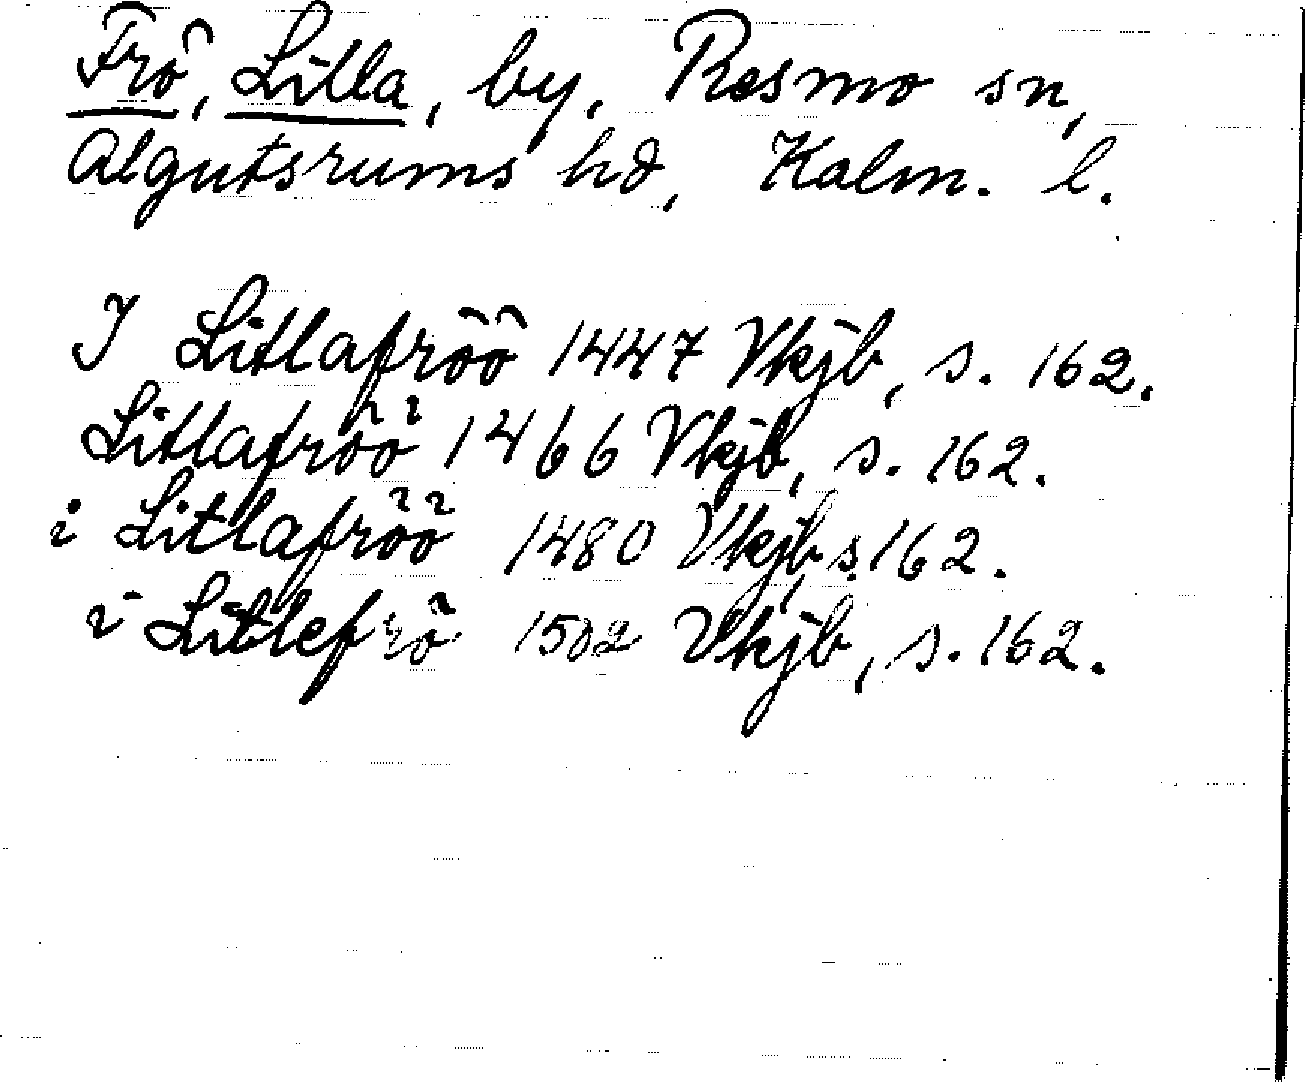 Frö, Lilla, by, Resmo sn,
Algutsrums hd, Kalm. l.
I Litlafröö 1447 Vkjb, s. 162.
Litlafröö 1466 Vkjb, s. 162.
i Litlafröö 1480 Vkjb, s. 162.
i Litlefrö 1502 Vkjb, s. 162.